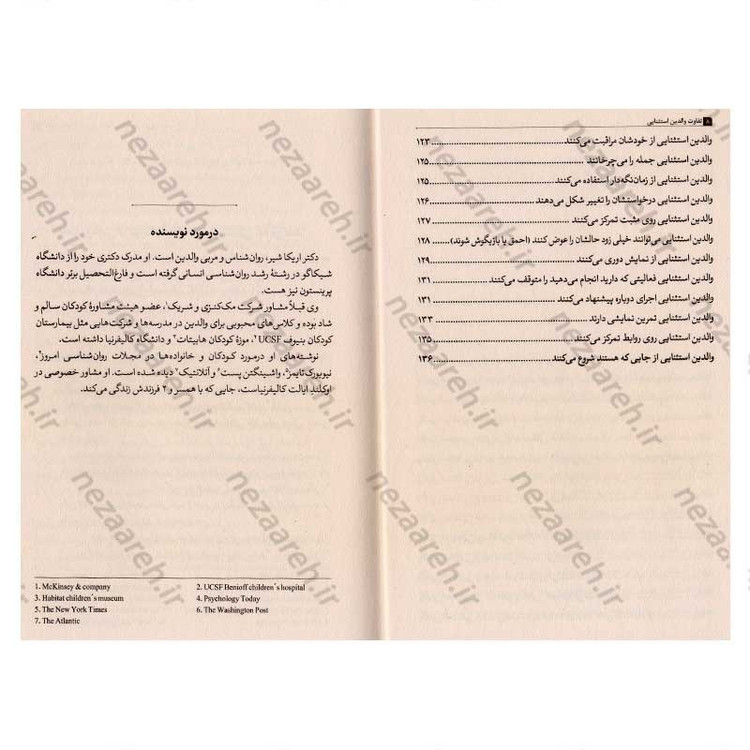 ۸ تفاوت والدین استثنایی
والدین استثنایی از خودشان مراقبت می‌کنند ۱۲۳
والدین استثنایی جمله را می‌چرخانند ۱۲۵
والدین استثنایی از زمان‌نگه‌دار استفاده می‌کنند ۱۲۵
والدین استثنایی درخواستشان را تغییر شکل می‌دهند ۱۲۶
والدین استثنایی روی مثبت تمرکز می‌کنند ۱۲۷
والدین استثنایی می‌توانند خیلی زود حالشان را عوض کنند (احمق یا بازیگوش شوند) ۱۲۸
والدین استثنایی از نمایش دوری می‌کنند ۱۲۹
والدین استثنایی فعالیتی که دارید انجام می‌دهید را متوقف می‌کنند ۱۳۱
والدین استثنایی اجرای دوباره پیشنهاد می‌کنند ۱۳۱
والدین استثنایی تمرین نمایشی دارند ۱۳۳
والدین استثنایی روی روابط تمرکز می‌کنند ۱۳۵
والدین استثنایی از جایی که هستند شروع می‌کنند ۱۳۶
درمورد نویسنده
دکتر اریکا شیر، روان‌شناس و مربی والدین است. او مدرک دکتری خود را از دانشگاه
شیکاگو در رشتهٔ رشد روان‌شناسی انسانی گرفته است و فارغ‌التحصیل برتر دانشگاه
پرینستون نیز هست.
وی قبلاً مشاور شرکت مک‌کنزی و شریک۱، عضو هیئت مشاورهٔ کودکان سالم و
شاد بوده و کلاس‌های محبوبی برای والدین در مدرسه‌ها و شرکت‌هایی مثل بیمارستان
کودکان بنیوف UCSF۲، موزهٔ کودکان هابیتات۳ و دانشگاه کالیفرنیا داشته است.
نوشته‌های او درمورد کودکان و خانواده‌ها در مجلات روان‌شناسی امروز۴،
نیویورک‌تایمز۵، واشینگتن پست۶ و آتلانتیک۷ دیده شده است. او مشاور خصوصی در
اوکلند ایالت کالیفرنیاست، جایی که با همسر و ۲ فرزندش زندگی می‌کند.
1. McKinsey & company 2. UCSF Benioff children's hospital
3. Habitat children's museum 4. Psychology Today
5. The New York Times 6. The Washington Post
7. The Atlantic
nezaareh.ir
nezaareh.ir
nezaareh.ir
nezaareh.ir
nezaareh.ir
nezaareh.ir
nezaareh.ir
nezaareh.ir
nezaareh.ir
nezaareh.ir
nezaareh.ir
nezaareh.ir
nezaareh.ir
nezaareh.ir